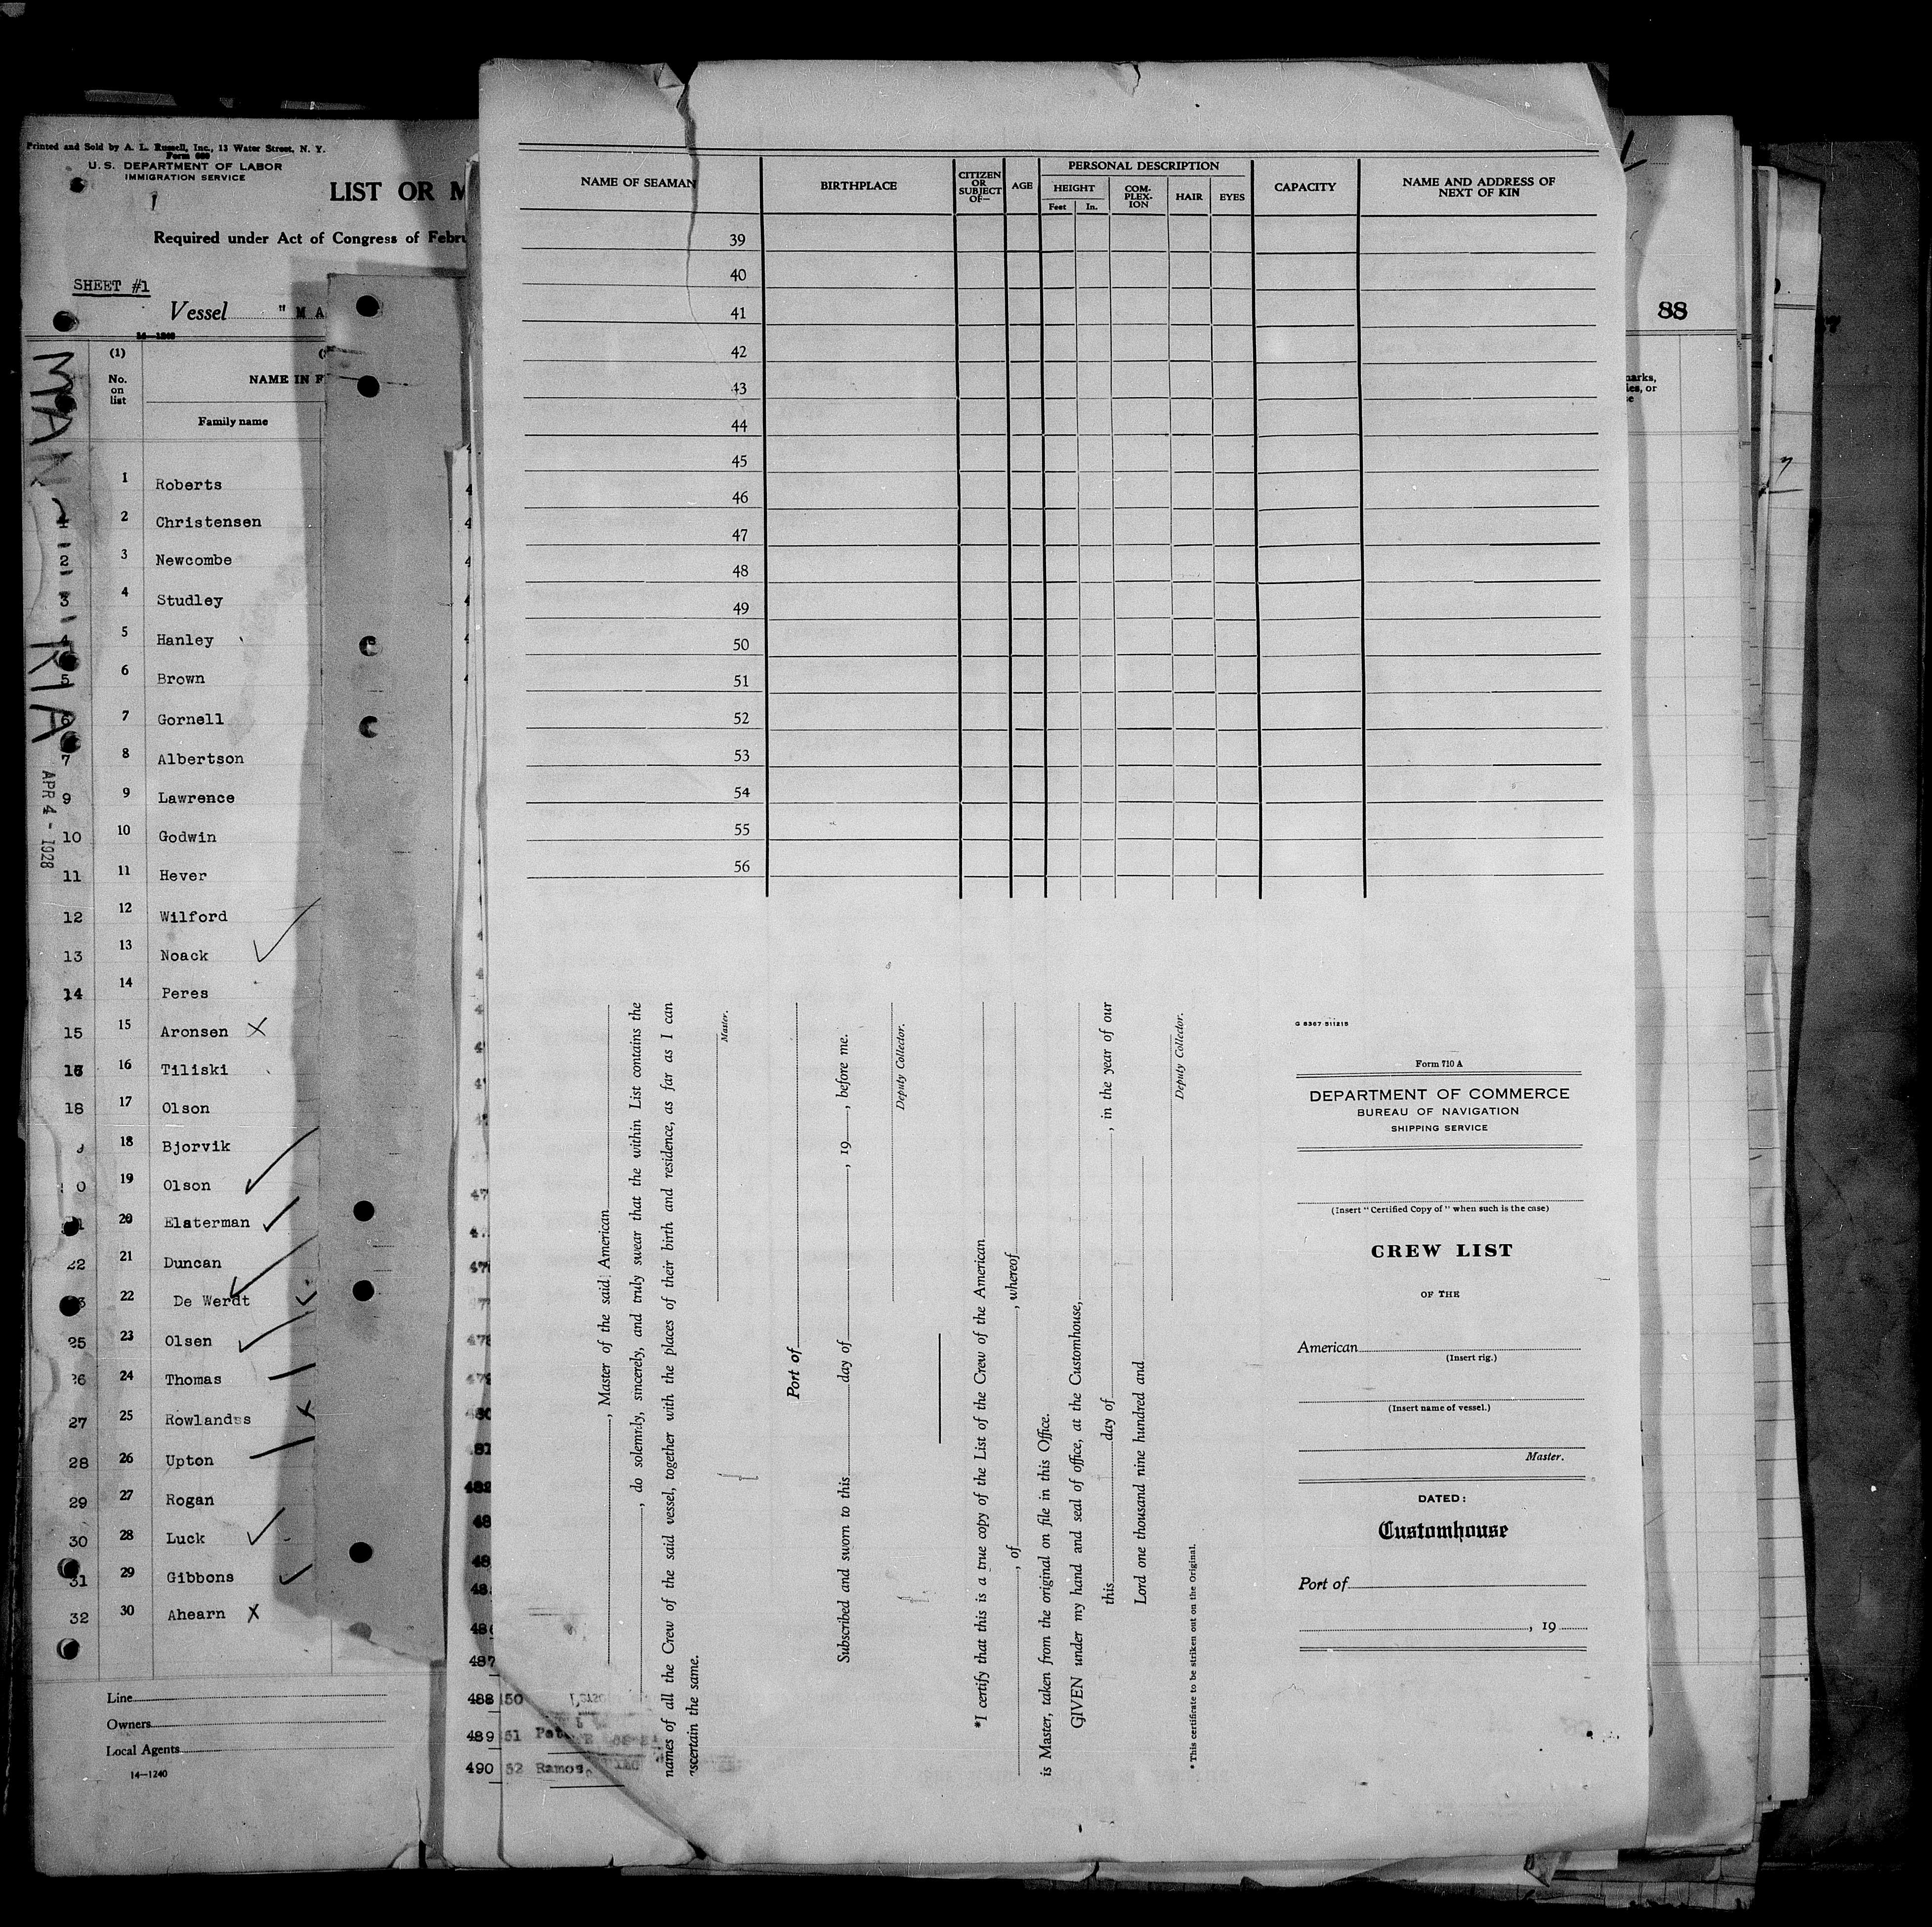 Printed and Sold by A. L. Russell, Inc., 13 Water Street, N. Y.
Form 680
U. S. DEPARTMENT OF LABOR
IMMIGRATION SERVICE
1
LIST OR M
Required under Act of Congress of Febru
SHEET #1
Vessel "M A
14—1240
(1)
No.
on
list
NAME IN F
Family name
MAN
RIA
APR 4 - 1928
1 1 Roberts
2 Christensen
2 3 Newcombe
3 4 Studley
4 5 Hanley
5 6 Brown
6 7 Gornell
7 8 Albertson
9 9 Lawrence
10 10 Godwin
11 11 Hever
12 12 Wilford
13 13 Noack
14 14 Peres
15 15 Aronsen X
16 Tiliski
18 17 Olson
18 Bjorvik
19 Olson
20 Elsterman
22 21 Duncan
22 De Werdt
25 23 Olsen
26 24 Thomas
27 25 Rowlands
28 26 Upton
29 27 Rogan
30 28 Luck
31 29 Gibbons
32 30 Ahearn X
Line
Owners
Local Agents
14—1240
487
488 50
489 51
490 52 Ramos
NAME OF SEAMAN
BIRTHPLACE
CITIZEN
OR
SUBJECT
OF—
AGE
PERSONAL DESCRIPTION
HEIGHT
Feet In.
COM-
PLEX-
ION
HAIR
EYES
CAPACITY
NAME AND ADDRESS OF
NEXT OF KIN
39
40
41
42
43
44
45
46
47
48
49
50
51
52
53
54
55
56
, Master of the said American
, do solemnly, sincerely, and truly swear that the within List contains the
names of all the Crew of the said vessel, together with the places of their birth and residence, as far as I can
ascertain the same.
Master.
Port of
Subscribed and sworn to this day of , 19 , before me.
Deputy Collector.
*I certify that this is a true copy of the List of the Crew of the American
, of , whereof
is Master, taken from the original on file in this Office.
GIVEN under my hand and seal of office, at the Customhouse,
this day of , in the year of our
Lord one thousand nine hundred and
Deputy Collector.
*This certificate to be striken out on the Original.
G 8367 511215
Form 710 A
DEPARTMENT OF COMMERCE
BUREAU OF NAVIGATION
SHIPPING SERVICE
(Insert "Certified Copy of" when such is the case)
CREW LIST
OF THE
American
(Insert rig.)
(Insert name of vessel.)
Master.
DATED:
Customhouse
Port of
, 19
88
marks,
ies, or
se